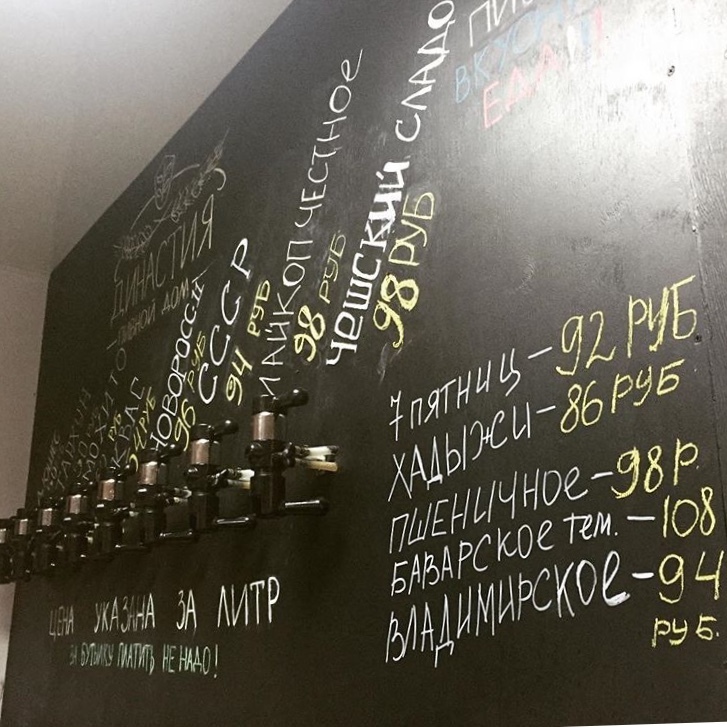 ВКУСН
ЕДА!!!
ДИНАСТИЯ
ПИВНОЙ ДОМ
МОХИТО
КВАС
НОВОРОССИ
96 РУБ
СССР
94 РУБ
МАЙКОП ЧЕСТНОЕ
98 РУБ
ЧЕШСКИЙ СЛАДО
98 РУБ
7 ПЯТНИЦ – 92 РУБ
ХАДЫЖИ – 86 РУБ
ПШЕНИЧНОЕ – 98 Р.
БАВАРСКОЕ тем. – 108
ВЛАДИМИРСКОЕ – 94
РУБ.
ЦЕНА УКАЗАНА ЗА ЛИТР
ЗА БУТЫЛКУ ПЛАТИТЬ НЕ НАДО!